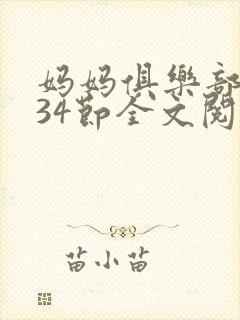 妈妈俱樂部
34節全文閱
苗小苗